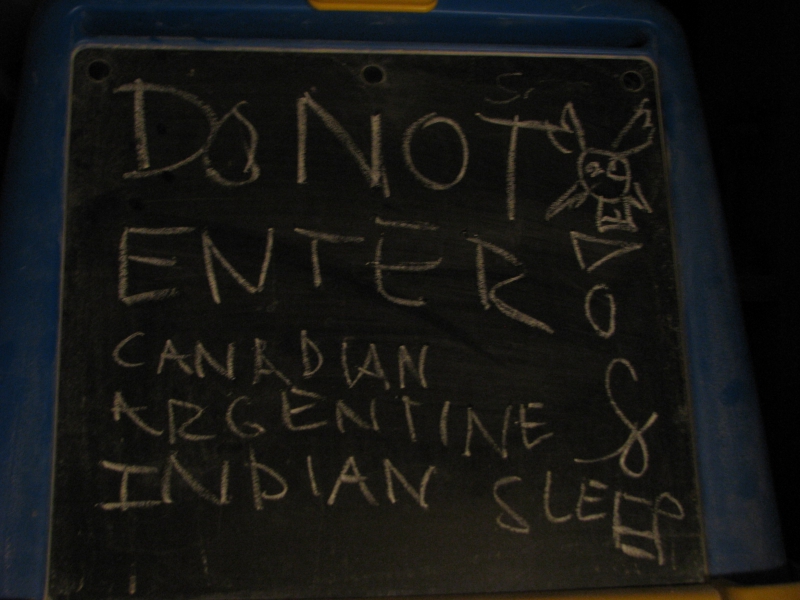 DO NOT
ENTER
CANADIAN
ARGENTINE
INDIAN SLEEP